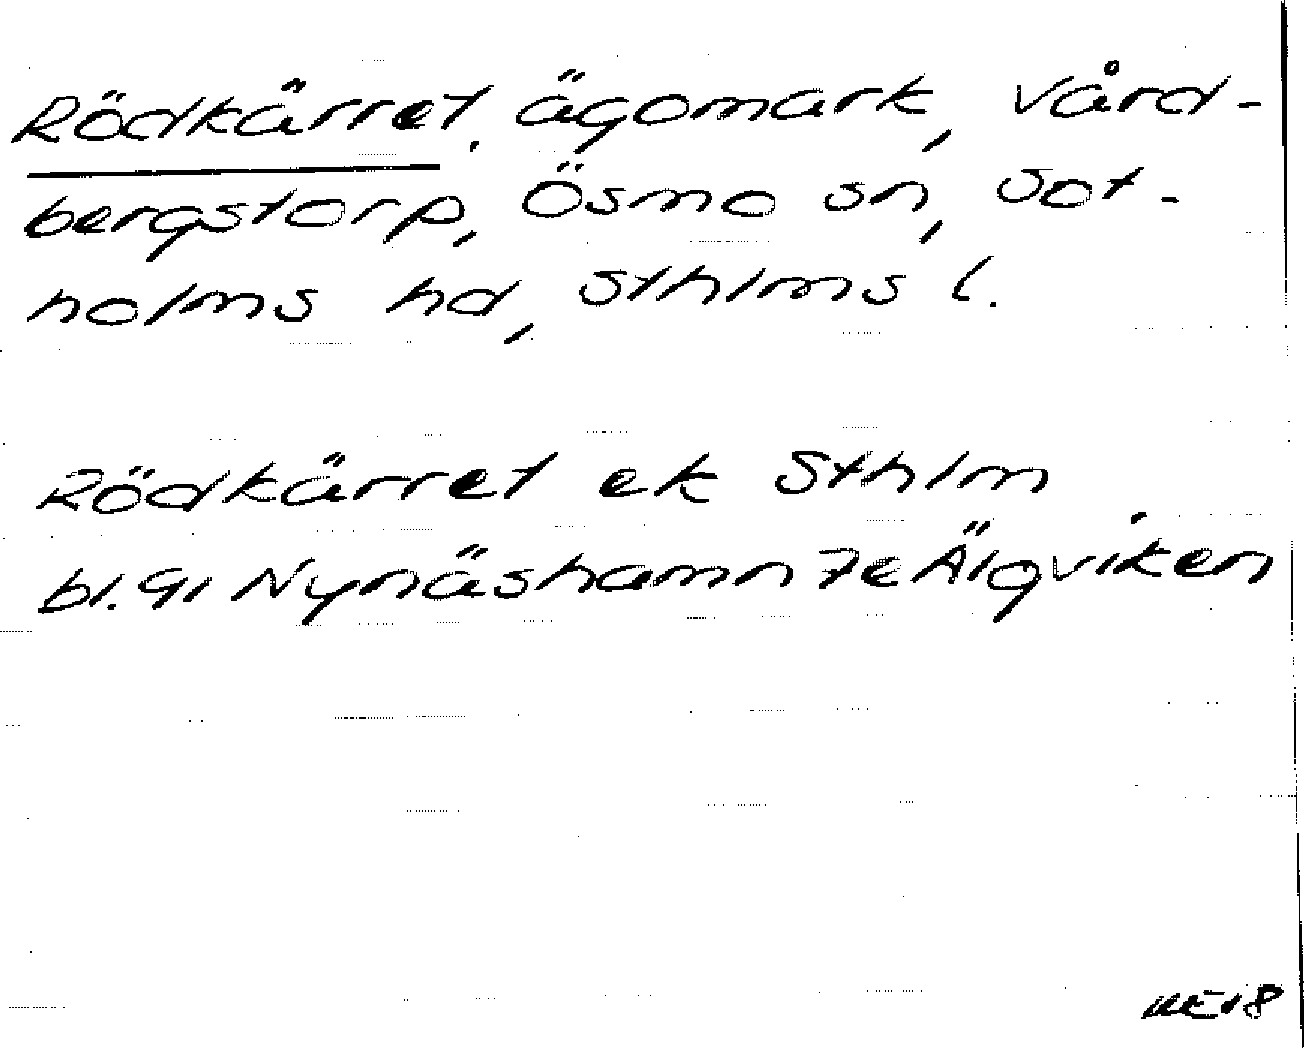 Rödkärret, ägomark, Vård-
bergstorp, Ösmo sn, Sot-
holms hd, Sthlms l.
Rödkärret ek Sthlm
bl. 91 Nynäshamn 7e Älgviken